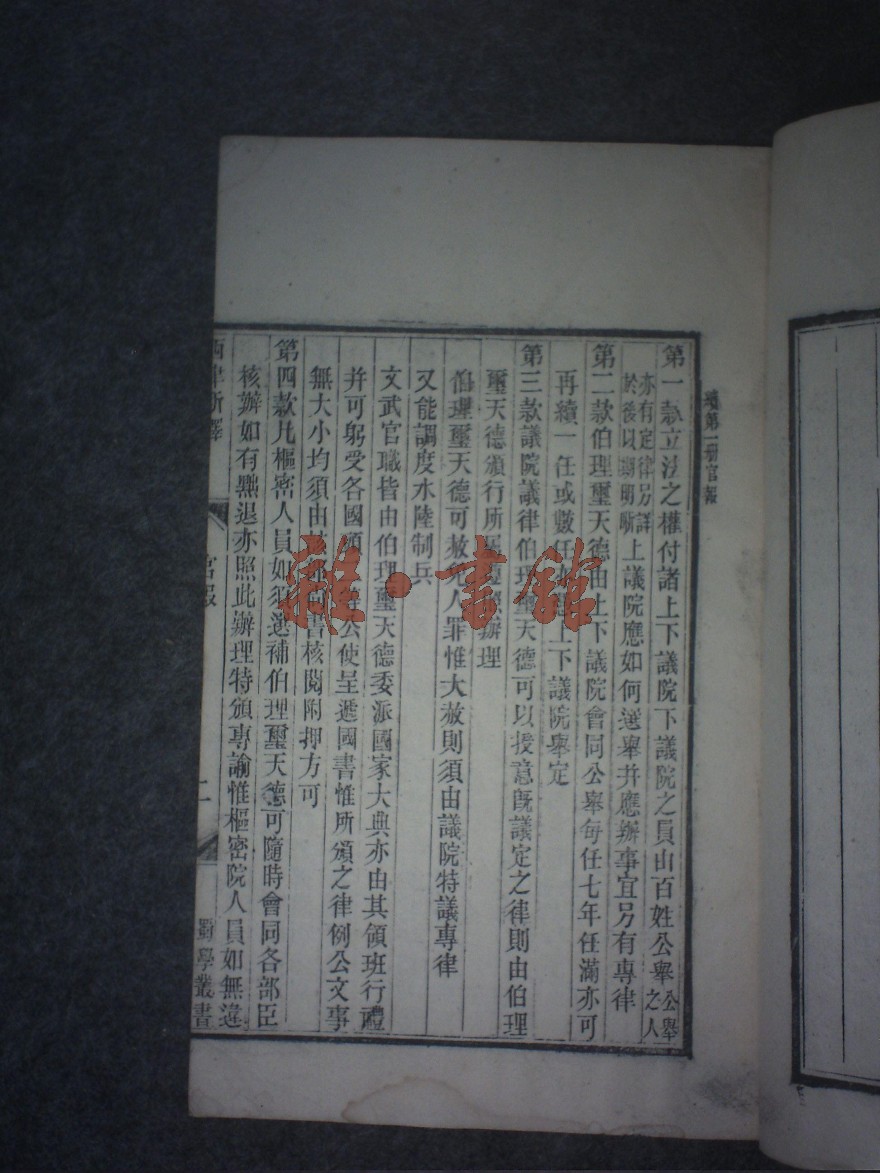 續第一册官報
第一款立法之權付諸上下議院下議院之員由百姓公舉公舉之人
亦有定律另詳於後以期明晰上議院應如何選舉并應辦事宜另有專律
第二款伯理璽天德由上下議院會同公舉每任七年任滿亦可
再續一任或數任上下議院舉定
第三款議院議律伯理璽天德可以授意旣議定之律則由伯理
璽天德頒行所辦理
伯理璽天德可赦免人罪惟大赦則須由議院特議專律
又能調度水陸制兵
文武官職皆由伯理璽天德委派國家大典亦由其領班行禮
并可躬受各國頒公使呈遞國書惟所頒之律例公文事
無大小均須由書核閱附押方可
第四款凡樞密人員如須選補伯理璽天德可隨時會同各部臣
核辦如有黜退亦照此辦理特頒專諭惟樞密院人員如無違
西律新譯
官報
二
蜀學叢書
雜·書館